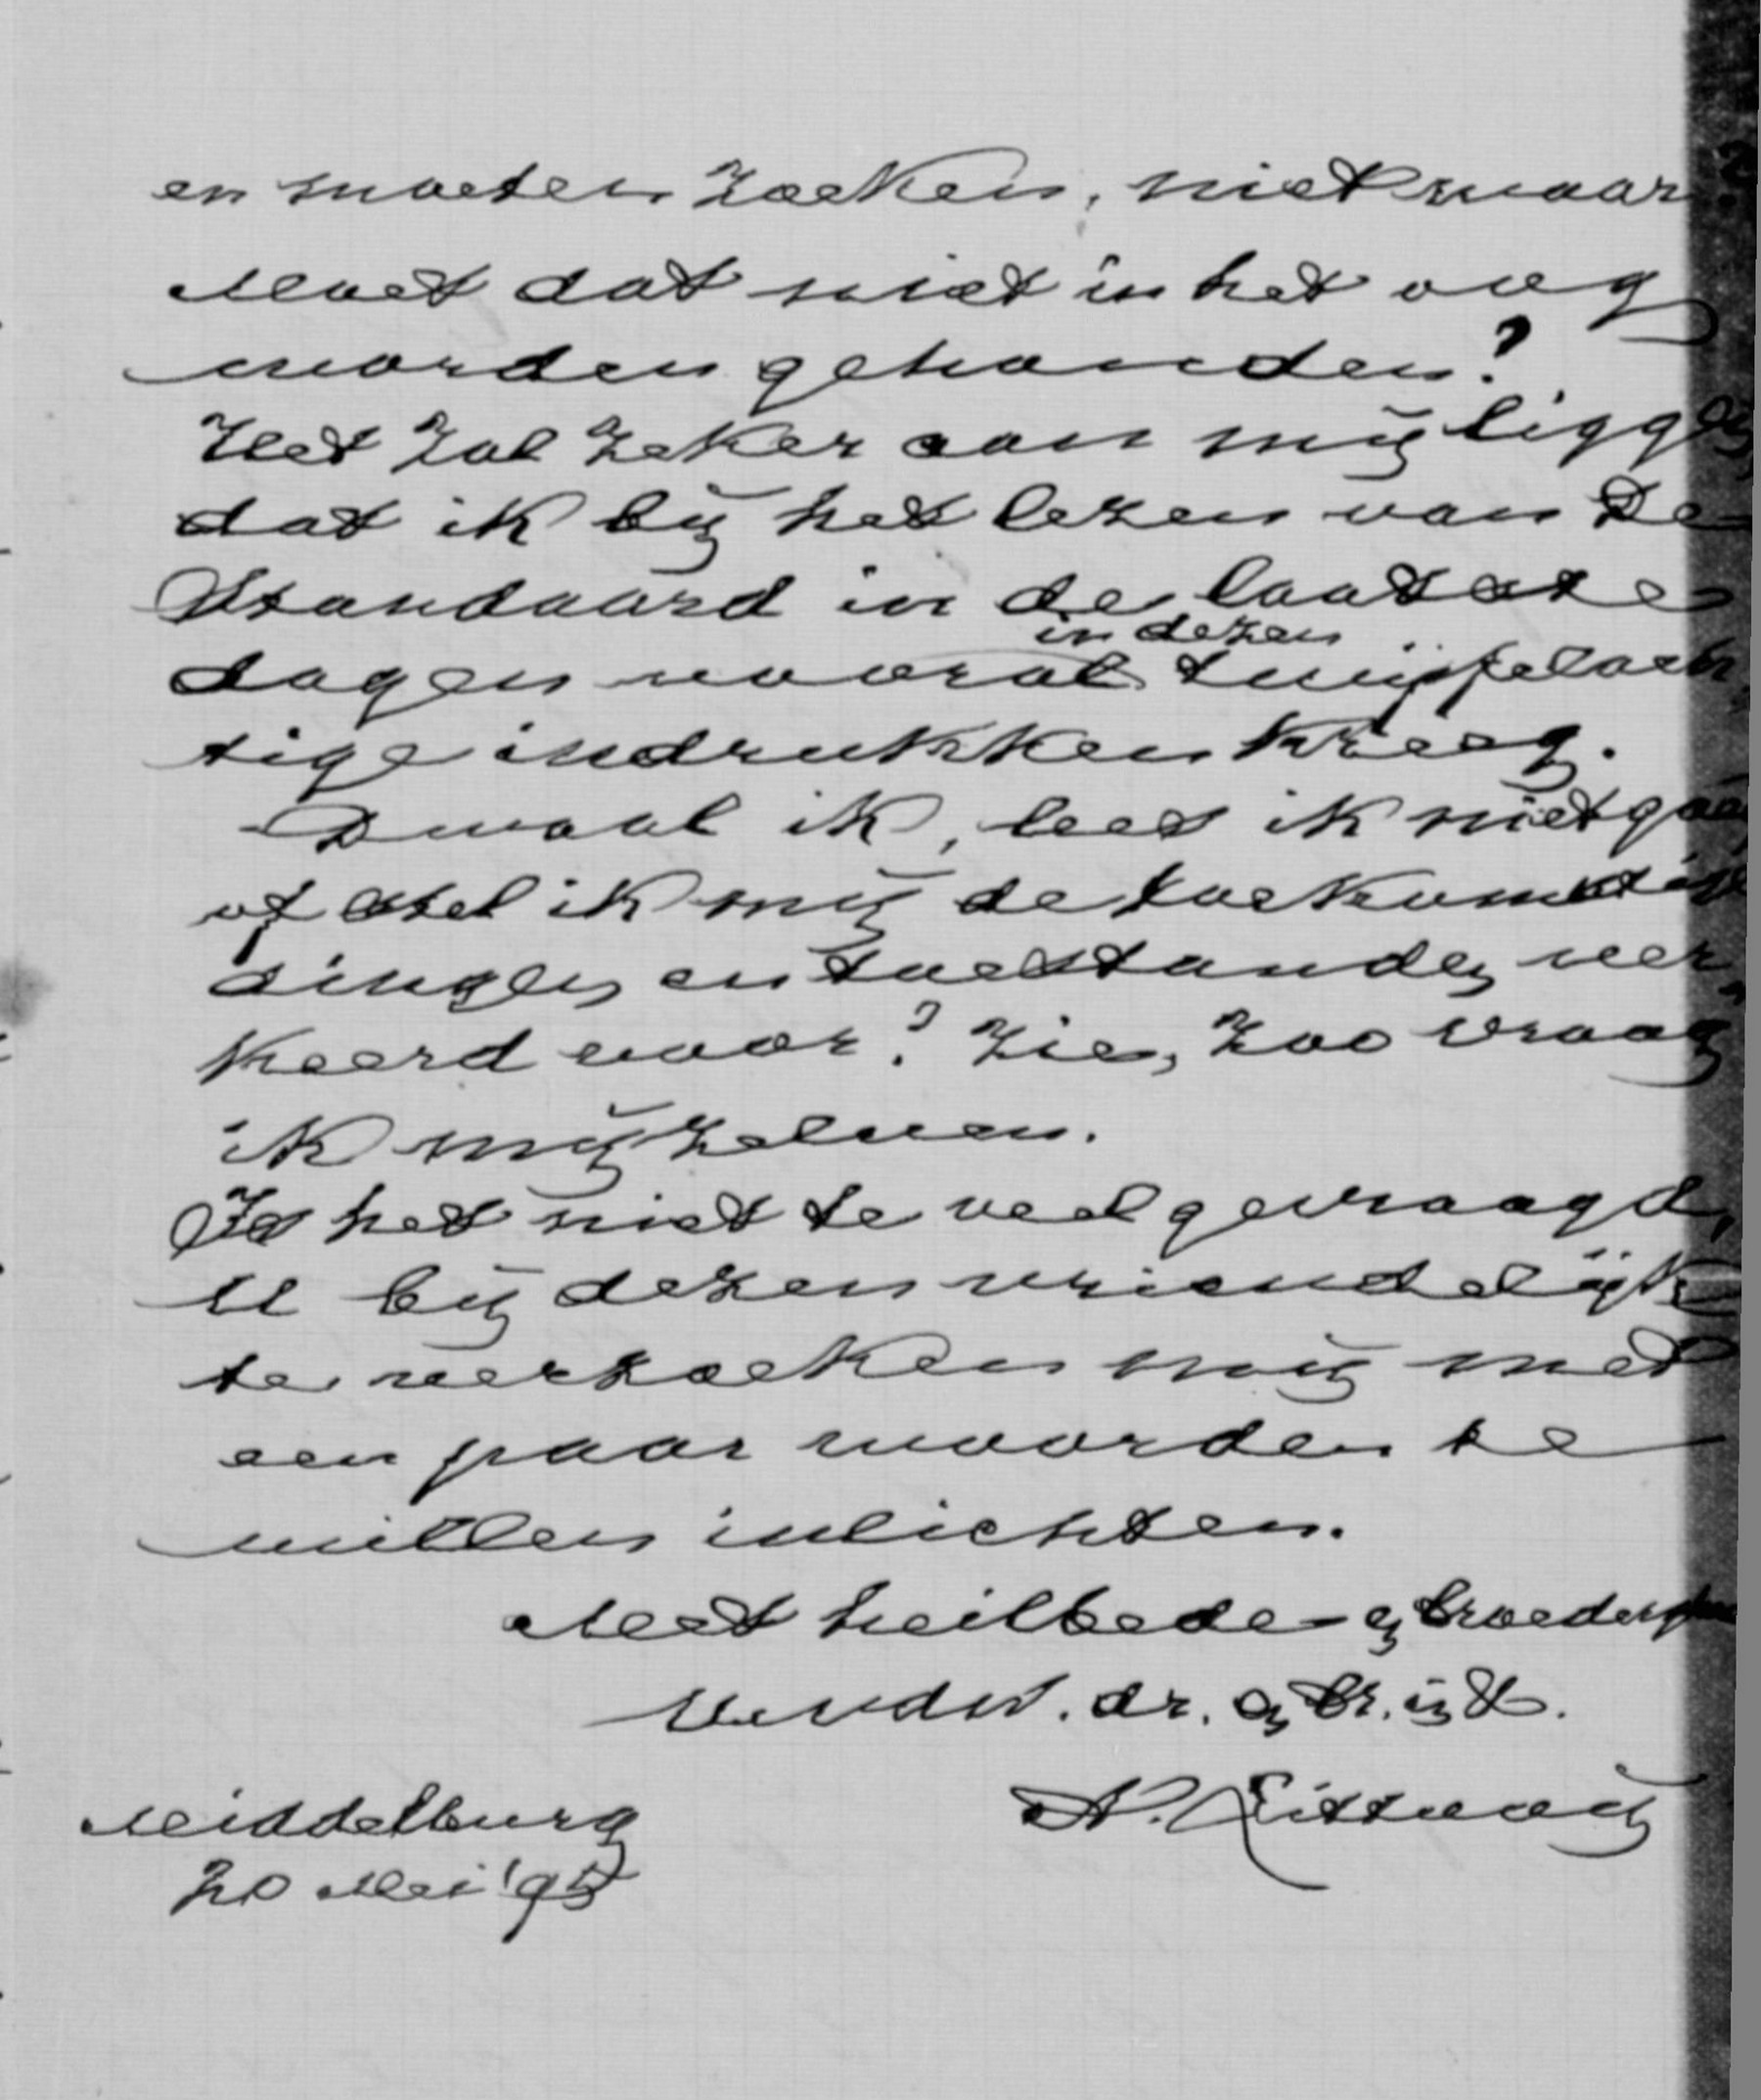 en moeten zoeken, niet waar?
Moet dat niet in het oog
worden gehouden?
Het zal zeker aan mij liggen,
dat ik bij het lezen van De
Standaard in de laatste
dagen vooral in dezen twijfelach„
tige indrukken kreeg.
Dwaal ik, lees ik niet goed
of stel ik mij de toekomstige
dingen en toestanden ver„
keerd voor? Zie, zoo vraag
ik mij zelven.
Is het niet te veel gevraagd,
U bij dezen vriendelijk
te verzoeken mij met
een paar woorden te
willen inlichten.
Met heilbede en broedergroet
Uw dw. dr. en br. in X.
A. Littooij
Middelburg
20 Mei '95